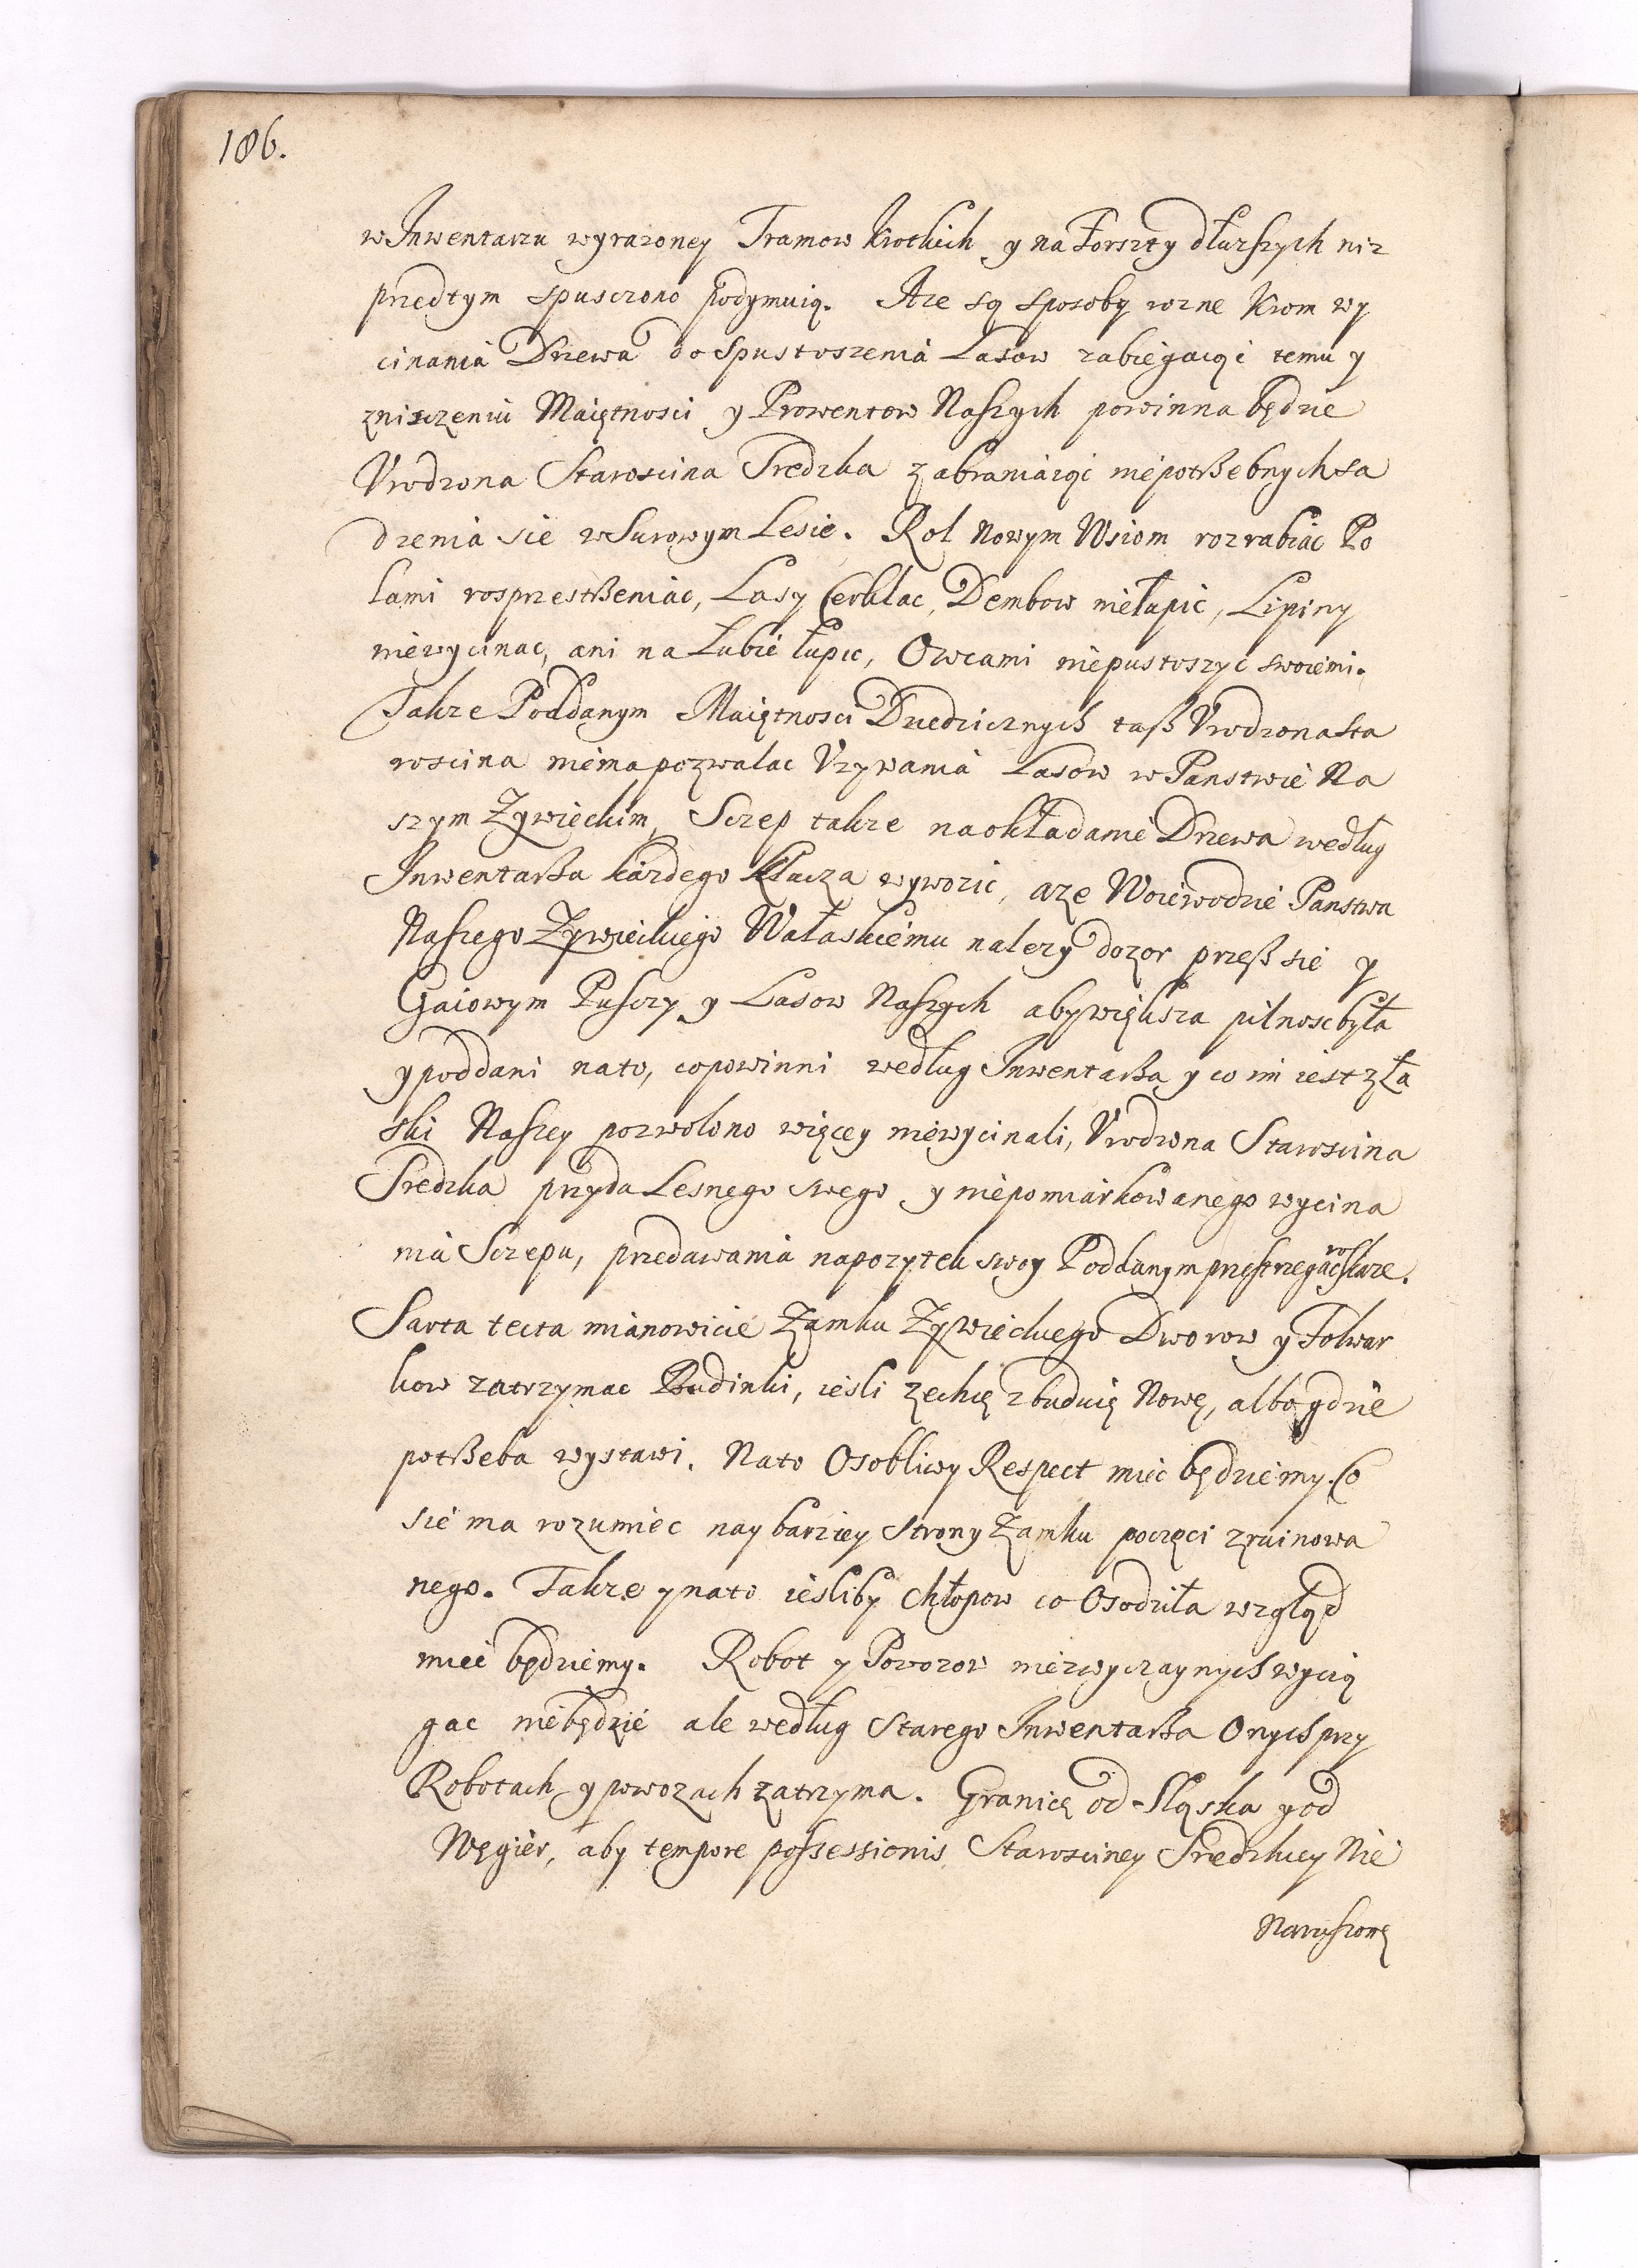 186.
w Inwentarzu wyrazoney Tramow krotkich y na Forszty dłuzszych niz
przedtym spusczono podymuią. Aze są sposoby rozne krom wy
cinania Drzewa do spustoszenia Lasow zabiegaiąc temu y
znisczeniu Maiętnosci y Prowentow Naszych powinna będzie
Vrodzona Staroscina Sredzka zabraniaiąc niepotrzebnych sa
dzenia sie w Surowym Lesie. Rol Nowym Wsiom rozrabiac Po
lami rosprzestrzeniac, Lasy Cerklac, Dembow niełupic, Lipiny
niewycinac, ani na Łubie łupic, Owcami niepustoszyc swoiemi.
Takze Poddanym Maiętnosci Dziedzicznych tasz Vrodzona Sta
roscina niema pozwalac Vzywania Lasow w Panstwie Na
szym Zywieckim, Sczep takze na okładanie Drzewa według
Inwentarza kazdego Klucza wywozic, aze Woiewodzie Panstwa
Naszego Zywieckiego Wałaskiemu nalezy dozor przesz sie y
Gaiowym Pusczy y Lasow Naszych aby większa pilnosc była
y poddani nato, co powinni według Inwentarza y co im iest z Ła
ski Naszey pozwolono więcey niewycinali, Vrodzona Staroscina
Sredzka przyda Lesnego swego y niepomiarkowanego wycina
nia Sczepu, przedawania na pozytek swoy Poddanym przestrzegac roskaze.
Sarta tecta mianowicie Zamku Zywieckiego Dworow y Folwar
kow zatrzymac Budinki, iesli zechcę zbuduię Nowę, albo gdzie
potrzeba wystawi. Nato Osobliwy Respect miec będziemy. Co
sie ma rozumiec naybarziey strony Zamku poczęci zruinowa
nego. Takze y nato iesliby chłopow co Osodziła wzgląd
miec będziemy. Robot y Powozow niezwyczaynych wycią
gac niebędzie ale według Starego Inwentarza Onych przy
Robotach y powozach zatrzyma. Granicę od Sląska y od
Węgier, aby tempore possessionis Starosciney Sredzkiey Nie
Naruszonę